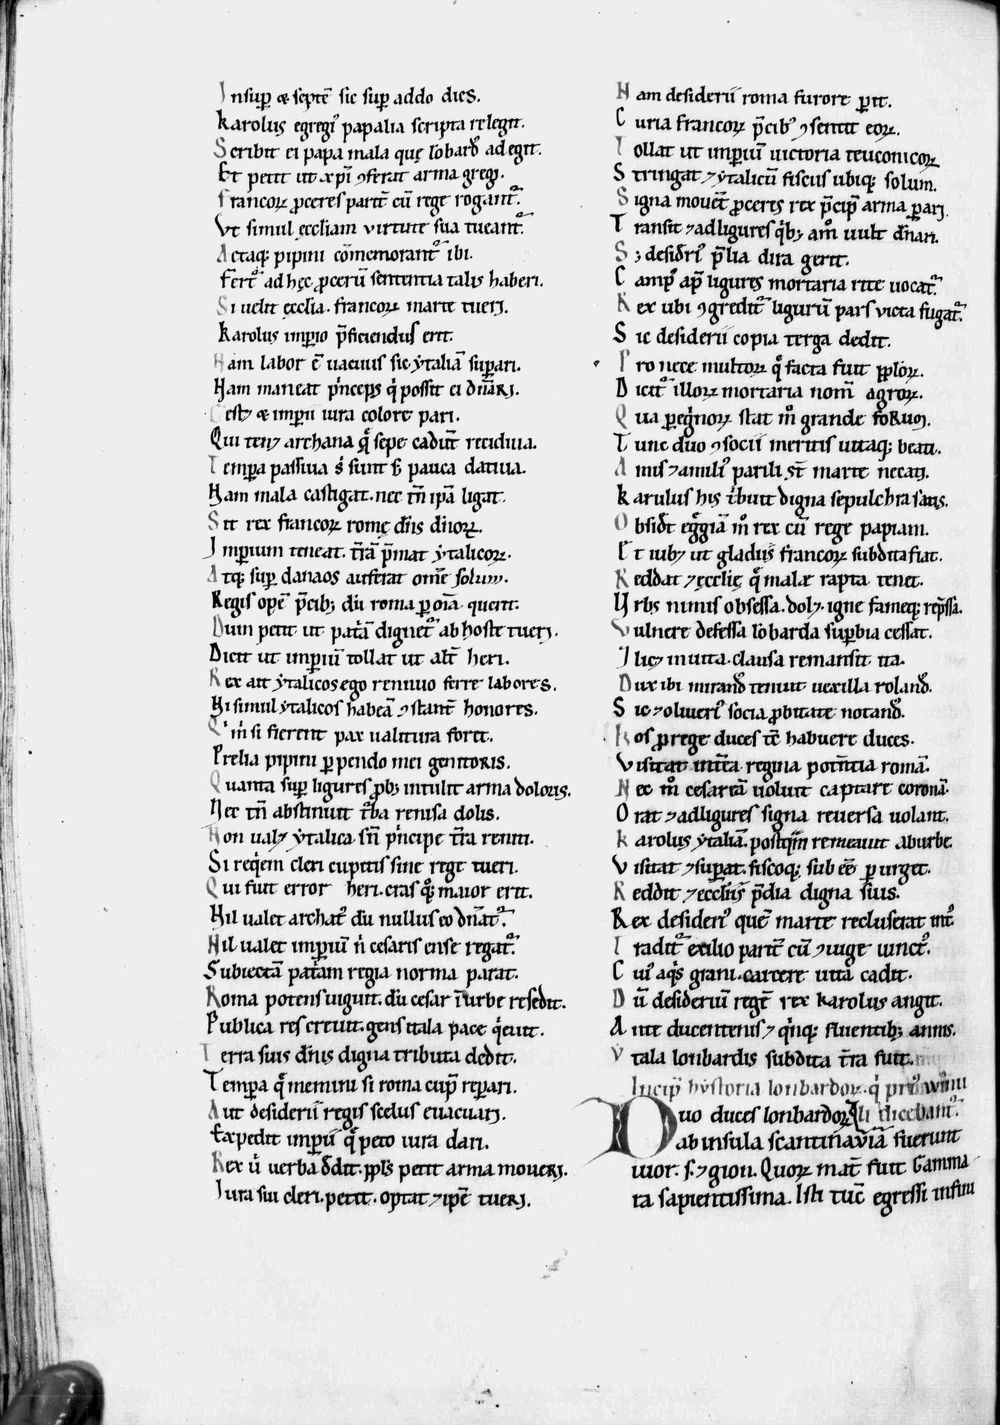 Insuꝑ & septē sic suꝑ addo dies.
Karolus egregi᷒ papalia scripta relegit.
Scribit ei papa mala quę lo͛bard᷒ adegit.
Et petit ut xp̄i ꝯferat arma gregi.
Francoꝝ ꝓceres partē cū rege rogant᷑.
Vt simul ęccliam virtute sua tueant᷑.
Actaqꝫ pipini cōmemorant᷑ ibi.
Fert᷑ ad hęc ꝓcerū sententia talis haberi.
Si uelit ęcclia. francoꝝ marte tueri.
Karolus imꝑio p̄ficiendus erit.
Nam labor ē uacuus sic ẏtaliā suꝑari.
Nam maneat p̀nceps q̀ possit ei dn̄ari.
& imꝑii iura colore pari.
Qui tenꝫ archana q̄ sepe cadūt recidiua.
Temꝑa passiua s; sunt pauca datiua.
Nam mala castigat. nec tn̄ ip̄a ligat.
Sit rex francoꝝ romę dn̄s dn̄oꝝ.
Imꝑium teneat. tr̄ā p̄mat ẏtalicoꝝ.
Atqꝫ suꝑ danaos auferat om̄e solum.
Regis opē p̄cibꝫ dū roma ꝑ om̄a querit.
Dum petit ut pat̄ā dignet᷑ ab hoste tueri.
Dicit ut imꝑiū tollat ut alt̄ heri.
Rex ait ẏtalicos ego rennuo ferre labores.
Hi simul ẏtalicos habeā ꝯstant̄ honores.
Q̀ m̀ si fierent pax ualitura foret.
Prelia pipini ꝑpendo mei genitoris.
Quanta suꝑ ligures ꝓbꝫ intulit arma doloris.
Nec tn̄ abstinuit t̄ba renisa dolis.
Non ualꝫ ẏtalica sn̄ p̀ncipe t̄ra reniti.
Si req̀em cleri cupitis sine rege tueri.
Qui fuit error heri. cras q̊ꝫ maior erit.
Nil ualet archat᷒ dū nullus eo dn̄at᷑.
Nil ualet imꝑiū ǹ cesaris ense regat᷑.
Subiectā pat̀am regia norma parat.
Roma potens uiguit. dū cesar ī urbe resedit.
Publica res creuit. gens itala pace q̀euit.
Terra suis dn̄is digna tributa dedit.
Temꝑa q̄ memini si roma cupit reꝑari.
Aut desiderii regis scelus euacuari.
Expedit imꝑii q̄ peto iura dari.
Rex u̇ uerba dedit. ppls petit arma moueri.
Iura sui cleri. petit. optat ⁊ ipē tueri.
Nam desiderii roma furore ꝑit.
Curia francoꝝ p̄cibꝫ ꝯsentit eoꝝ.
Tollat ut imꝑiū uictoria teuconicoꝝ.
Stringat ⁊ ẏtalicū fiscus ubiqꝫ solum.
Signa mouēt ꝓceres rex p̄ciꝑ arma ꝑari.
Transit ⁊ ad ligures q̀bꝫ am̊ uult dn̄ari.
Sꝫ desideri᷒ p̄lia dira gerit.
Camp᷒ apd̄ ligures mortaria rite uocat᷑.
Rex ubi ꝯgredit᷑ ligurū pars victa fugat᷑.
Sic desiderii copia terga dedit.
Pro nece multoꝝ q̄ facta fuit pploꝝ.
Dicit᷑ illoꝝ mortaria nom̄ agroꝝ.
Qua ꝑeg̀noꝝ stat m̊ grande foꝝ.
Tunc duo ꝯsocii meritis uitaqꝫ beati.
Amis ⁊ amili᷒ parili st̄ marte necati.
Karulus his t̀buit digna sepulchra satis.
Obsidet eg̀giā m̊ rex cū rege papiam.
Et iubꝫ ut gladiis francoꝝ subdita fiat.
Reddat ⁊ ęcclię q̄ malæ rapta tenet.
Vrbs nimis obsessa. dolꝫ. igne fameqꝫ rep̄ssa.
Vulnere defessa lo͛barda suꝑbia cessat.
Ilicꝫ inuita. clausa remansit ita.
Dux ibi mirand᷒ tenuit uexilla roland᷒.
Sic ⁊ oliueri᷒ socia ꝓbitate notand᷒.
Hos ꝓ rege duces tc̄ habuere duces.
Visitat int̄ea regina potn̄tia romā.
Nec m̊ cesareā uoluit captare coronā.
Orat ⁊ ad ligures signa reuersa uolant.
Karolus ẏtaliā. postq̄m remeauit ab urbe.
Visitat ⁊ suꝑat. fiscoqꝫ sub eē ꝑurget.
Reddit ⁊ ecclīis p̄dia digna suis.
Rex desideri᷒ quē marte recluserat int᷒.
Tradit᷑ exilio partē cū ꝯiuge uinct᷒.
Cui᷒ aq̀s grani. carcere uita cadit.
Dū desideriū regē rex karolus angit.
Ante ducentenis ⁊ q̀nqꝫ fluentibꝫ annis.
Ytala lonbardis subdita t̄ra fuit.
Incip̄ hẏstoria lonbardoꝝ. q̀
Duo duces lonbardoꝝ
ab insula scantinauiā fuerunt
iuor. s. ⁊ gion. Quoꝝ mat̄ fuit Gamma
ra sapientissima. Isti tūc egressi